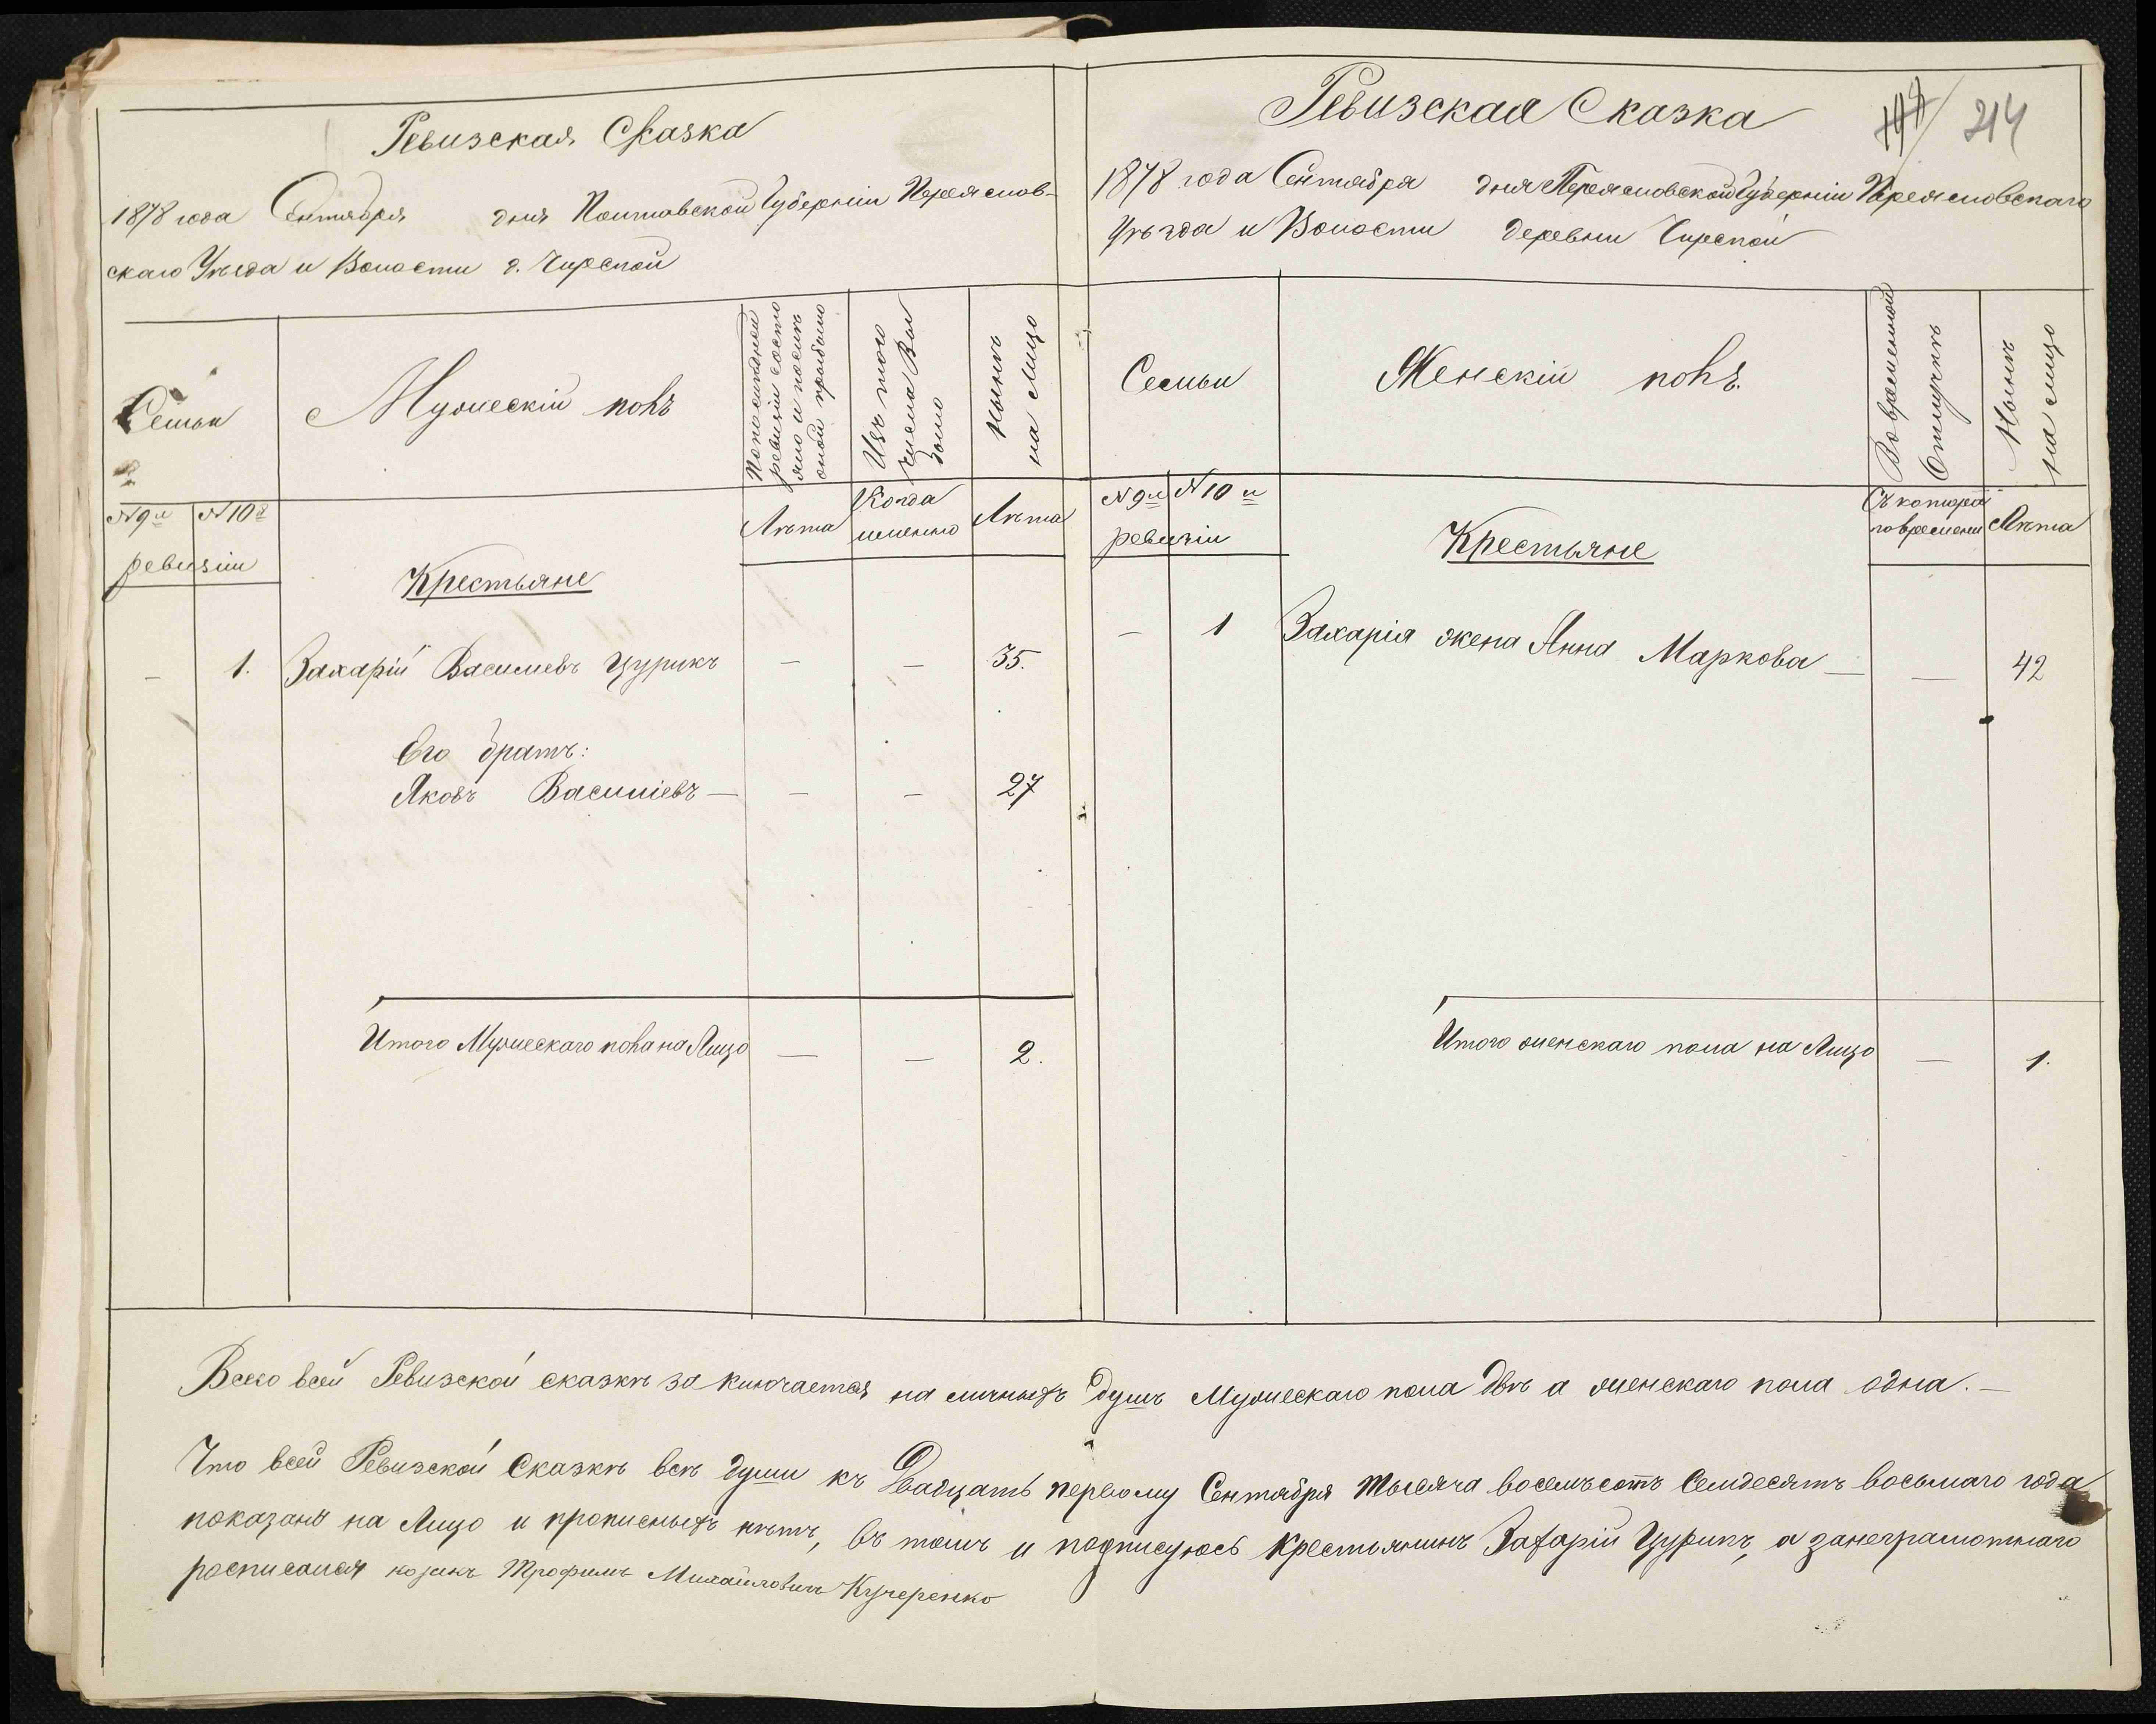 Ревизская Сказка
1878 года Сентября дня Полтавской Губерніи Переяслов-
скаго Уѣзда и Волости д. Чирской
Семьи
Мужескій полъ
По последней
ревизіи состо
яло и послѣ
оной прибыло
Изъ того
числа Вы
было
Нынѣ
на Лицо
№ 9й № 10й
ревизіи
Лѣта
Когда
именно
Лѣта
Крестьяне
— 1. Захарій Василиевъ Цурикъ — — 35.
Его братъ:
Яковъ Василіевъ — — — 27
Итого Мужескаго пола на Лицо — — 2.
214
Ревизская Сказка
1878 года Сентября дня Переясловской Губерніи Переясловскаго
Уѣзда и Волости деревни Чирской
Семьи
Женскій полъ.
Во временной
Отлучкѣ
Нынѣ
на лицо
№ 9й № 10й
ревизіи
Съ котораго
времени
Лѣта
Крестьяне
— 1 Захарія жена Анна Маркова — — 42
Итого женскаго пола на Лицо — 1.
Всего всей Ревизской сказкѣ заключается на личныхъ душъ Мужескаго пола двѣ а женскаго пола одна. —
Что всей Ревизской Сказкѣ всѣ души къ Двадцать первому Сентября тысяча восемъсотъ Семдесятъ восьмаго года
показаны на Лицо и прописныхъ нѣтъ, въ томъ и подписуюсь Крестьянинъ Захарій Цурикъ, а занеграмотнаго
росписался козакъ Трофимъ Михайловичъ Кучеренко